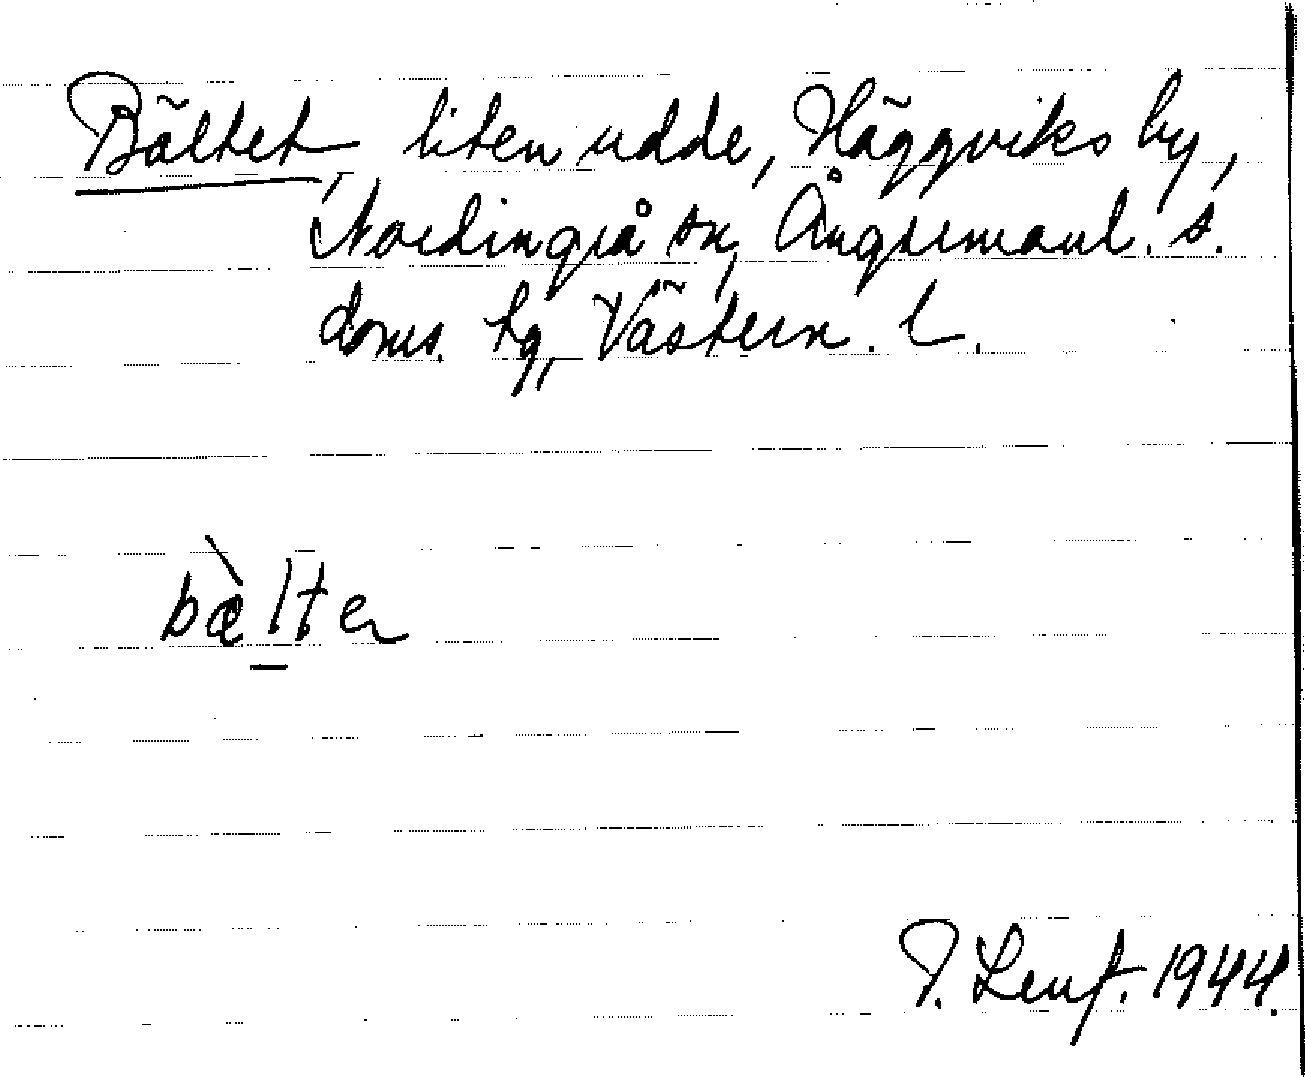 Bältet, liten udde, Häggviks by,
Nordingrå sn, Ångermanl. s.
doms. hg, Västern. l.
bæ̀lter
P. Leuf. 1944.